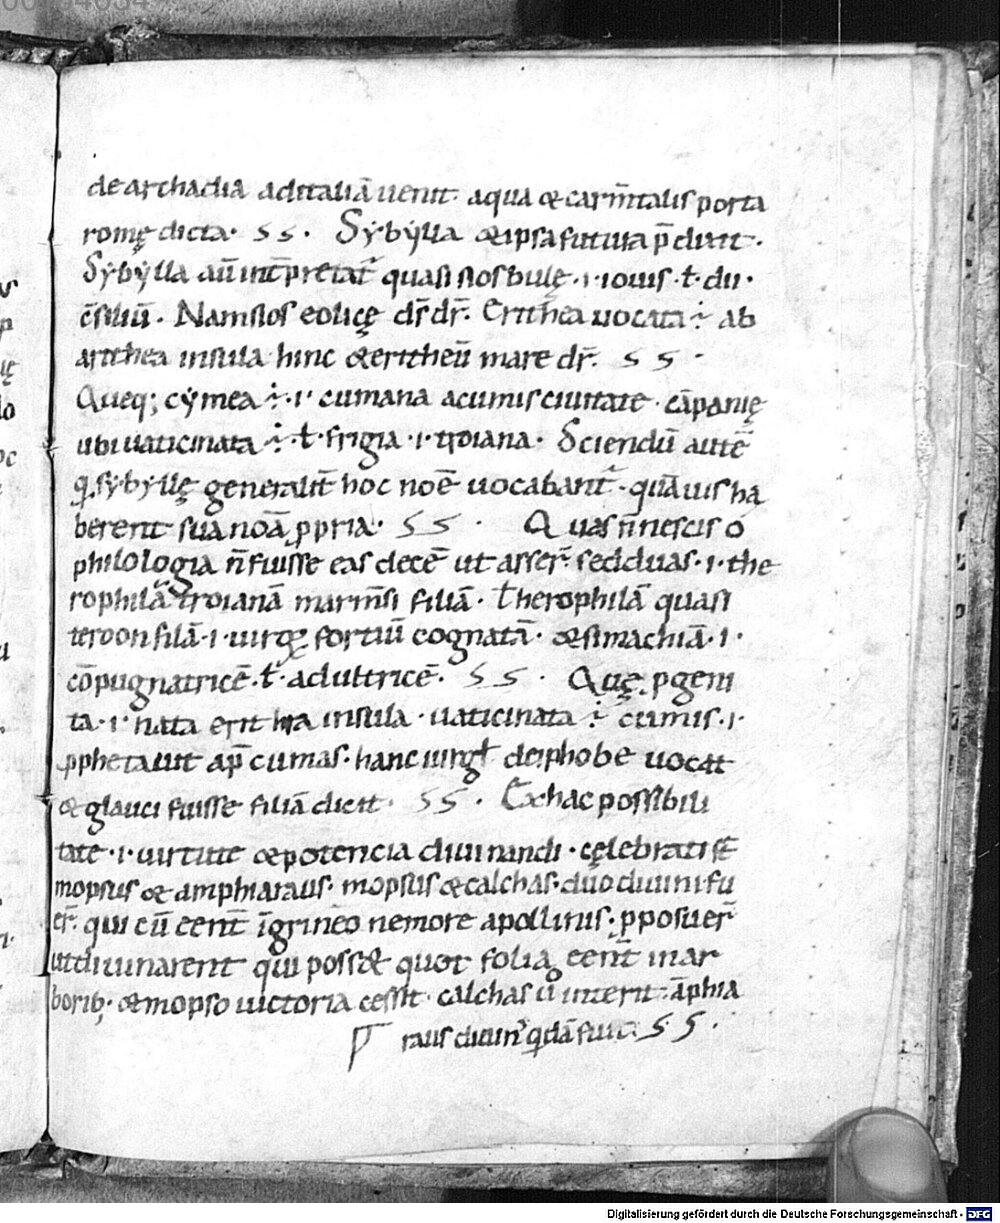 de archadia ad italiā uenit· aqua & carm̄talis porta
romę dicta· ss· Sẏbẏlla & ipsa futura p̄dixit·
Sẏbẏlla aū int̄pretat᷑ quasi siosbulę·i·iouis·ł·dii·
c̄siliū· Nam sios eolicę ds̄ dr̄· Erithea uocata ÷ ab
arithea insula hinc & eritheū mare dr̄· ss·
Quęq; cẏmea ÷·i· cumana a cumis ciuitate cāpanię
ubi uaticinata ÷·ł·frigia·i·troiana· Sciendū autē
q̨ sẏbẏllę generalit̄ hoc noē uocabant᷑·quāuis ha
berent sua noā ꝓpria· ss· Quas n̄ nescis o
philologia n̄ fuisse eas decē ut asser̄ sed duas·i·the
rophilā troianā marm̄si filiā· therophilā quasi
teroon filā·i·uirgę fortiū cognatā· & simachiā·i·
cōpugnatricē·ł·adultricē· ss· Quę pgeni
ta·i·nata erithra insula·uaticinata ÷ cumis·i·
ꝓphetauit ap̄ cumas·hanc uirgł deiphobe uocat
& glauci fuisse filiā dicit· ss· Ex hac possibili
tate·i·uirtute & potencia diuinandi·cęlebrati s̄t
mopsus & amphiaraus· mopsus & calchas·duo diuini fu
er̄· qui cū eēnt ī grineo nemore apollinis· pposuer̄
ut diuinarent qui poss& quot folia eēnt in ar
borib;·& mopso uictoria cessit· calchas ū interiit· āphia
raus diuin᷒ q̨dā fuit ss·